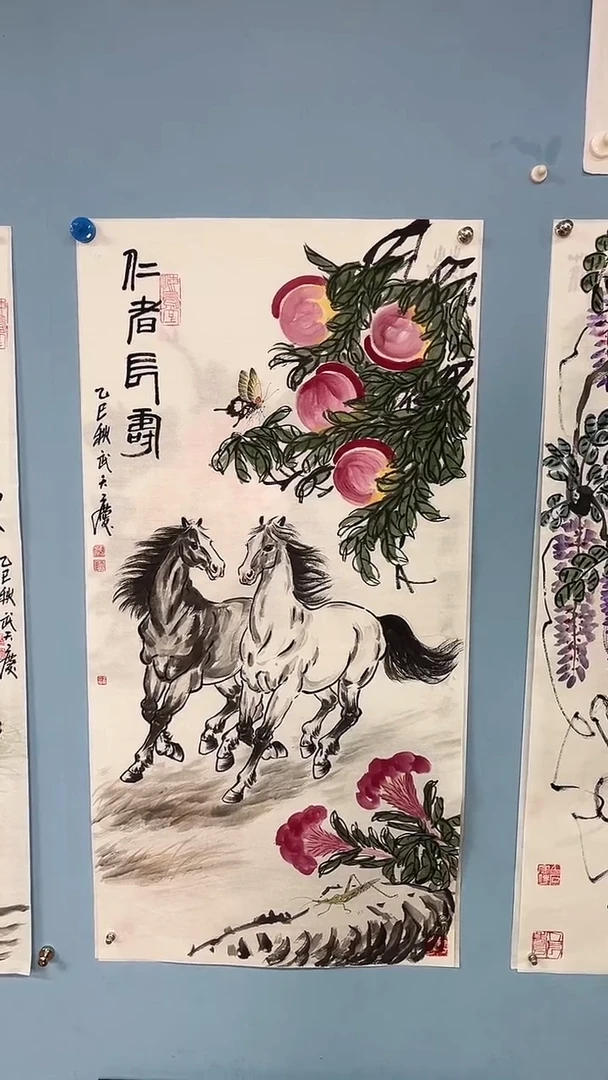 仁者長壽
乙巳秋武大慶
乙巳秋武大慶